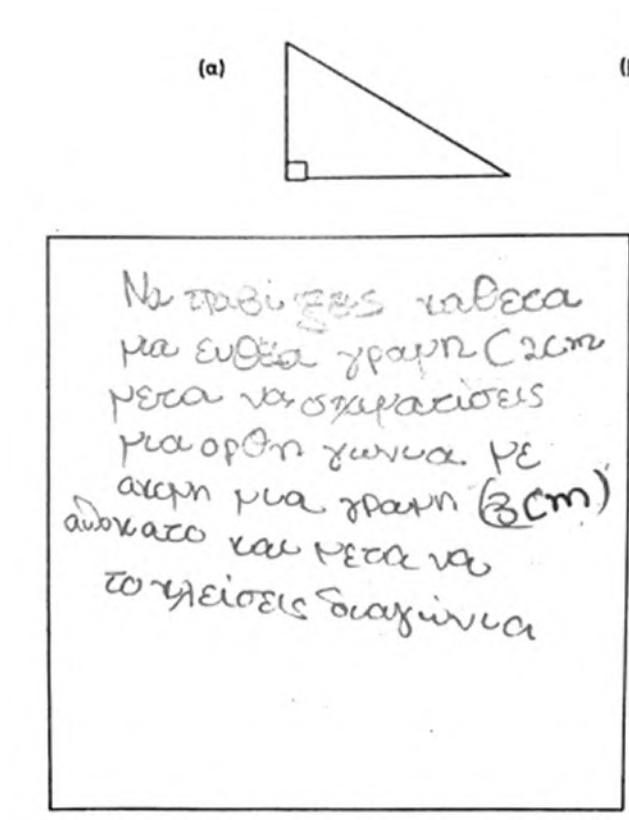 (α)
Να τραβίξεις καθετα
μια ευθεία γραμη (2cm
μετα να σχηματισεις
μια ορθη γωνια με
ακομη μια γραμη (3cm)
αποκατο και μετα να
το κλείσεις διαγώνια